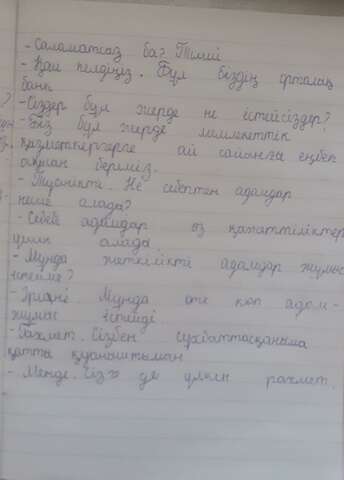 - Саламатсаз ба? Тілий
- Қай келдіңіз. Бұл біздің орталық
банк
- Сіздер бұл жерде не істейсіздер?
- Біз бұл жерде мемлекеттік
қызметкерлерге ай сайынғы еңбек
ақысын береміз.
- Түсінікті. Не себептен адамдар
неше алады?
- Себебі адамдар өз қажеттіліктер
үшін алады
- Мұнда жеткілікті адамдар жұмыс
істейме?
- Әрине Мұнда өте көп адам -
жұмыс істейді
- Рахмет. Сізбен сұхбаттасқаныма
қатты қуаныштымын
- Менде. Сізге де үлкен рахмет.